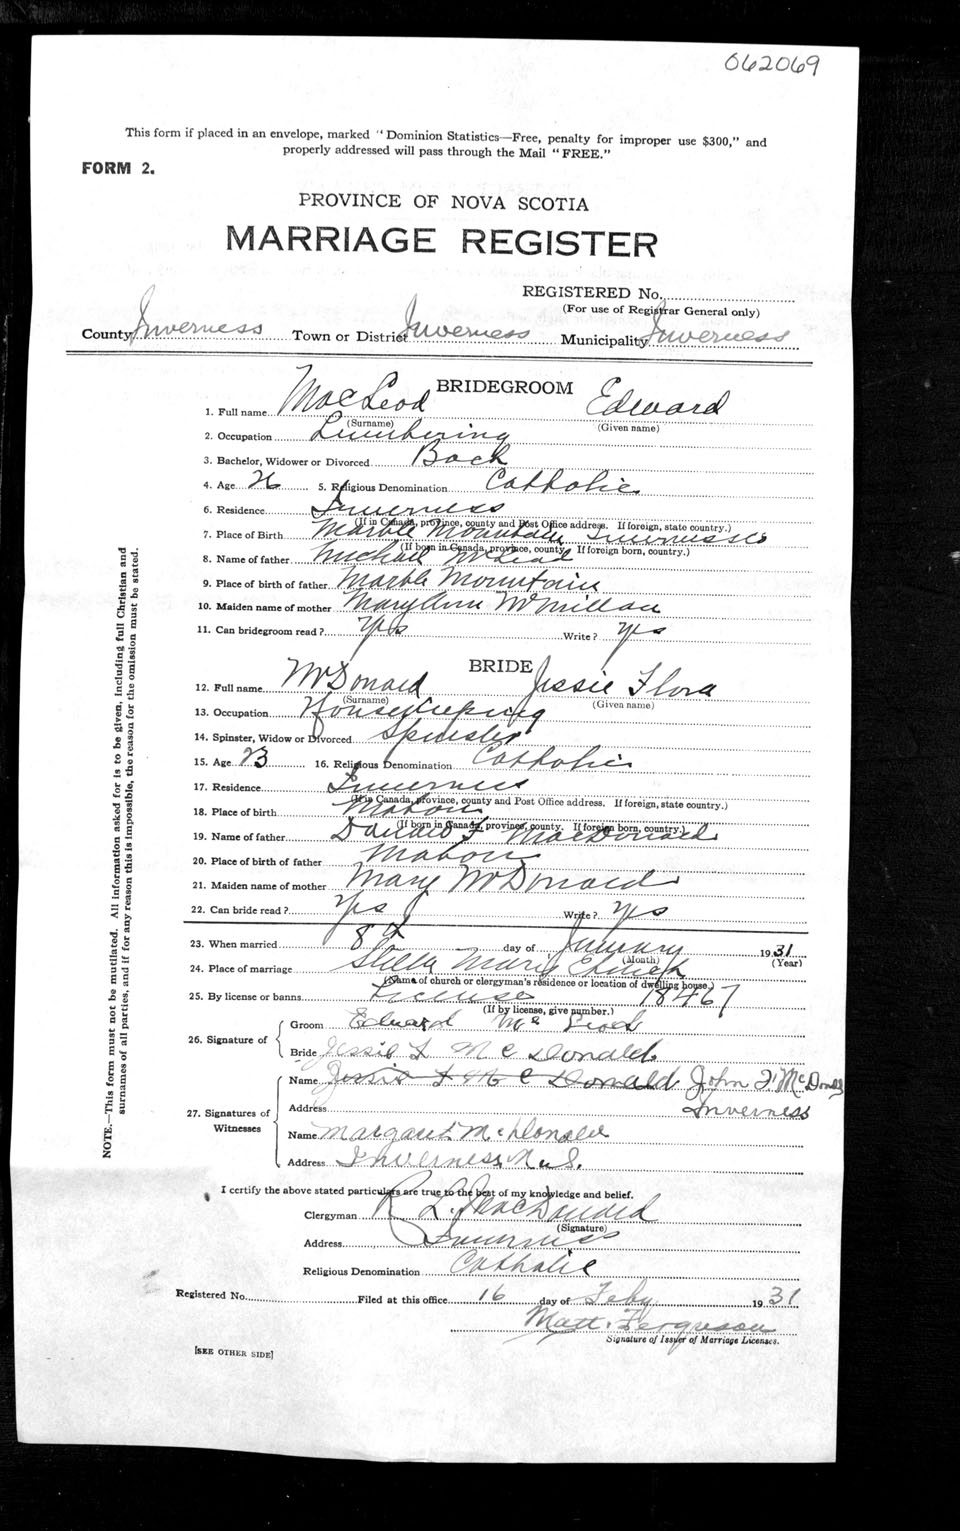 062069
This form if placed in an envelope, marked "Dominion Statistics—Free, penalty for improper use $300," and
properly addressed will pass through the Mail "FREE."
FORM 2.
PROVINCE OF NOVA SCOTIA
MARRIAGE REGISTER
REGISTERED No.
(For use of Registrar General only)
County Inverness Town or District Inverness Municipality Inverness
BRIDEGROOM
1. Full name MacLeod Edward
(Surname) (Given name)
2. Occupation Lumbering
3. Bachelor, Widower or Divorced Bach
4. Age 26 5. Religious Denomination Catholic
6. Residence Inverness
(If in Canada, province, county and Post Office address. If foreign, state country.)
7. Place of Birth Marble Mountain Inverness Co
(If born in Canada, province, county. If foreign born, country.)
8. Name of father Michael McLeod
9. Place of birth of father Marble Mountain
10. Maiden name of mother Mary Ann McMillan
11. Can bridegroom read? Yes Write? Yes
BRIDE
12. Full name McDonald Jessie Flora
(Surname) (Given name)
13. Occupation Housekeeping
14. Spinster, Widow or Divorced Spinster
15. Age 23 16. Religious Denomination Catholic
17. Residence Inverness
(If in Canada, province, county and Post Office address. If foreign, state country.)
18. Place of birth Mabou
(If born in Canada, province, county. If foreign born, country.)
19. Name of father Donald F MacDonald
20. Place of birth of father Mabou
21. Maiden name of mother Mary McDonald
22. Can bride read? Yes Write? Yes
23. When married 8th day of January 1931
(Month) (Year)
24. Place of marriage Stella Maris Church
(Name of church or clergyman's residence or location of dwelling house.)
25. By license or banns License 18467
(If by license, give number.)
26. Signature of Groom Edward Mc Leod
Bride Jessie F McDonald
27. Signatures of Witnesses Name Jessie F McDonald John F. McDonald
Address Inverness
Name Margaret McDonald
Address Inverness N.S.
I certify the above stated particulars are true to the best of my knowledge and belief.
Clergyman R. L. MacDonald
(Signature)
Address Inverness
Religious Denomination Catholic
Registered No. Filed at this office 16 day of Feby 1931
Matt. Ferguson
Signature of Issuer of Marriage Licenses.
[SEE OTHER SIDE]
NOTE.—This form must not be mutilated. All information asked for is to be given, including full Christian and
surnames of all parties, and if for any reason this is impossible, the reason for the omission must be stated.